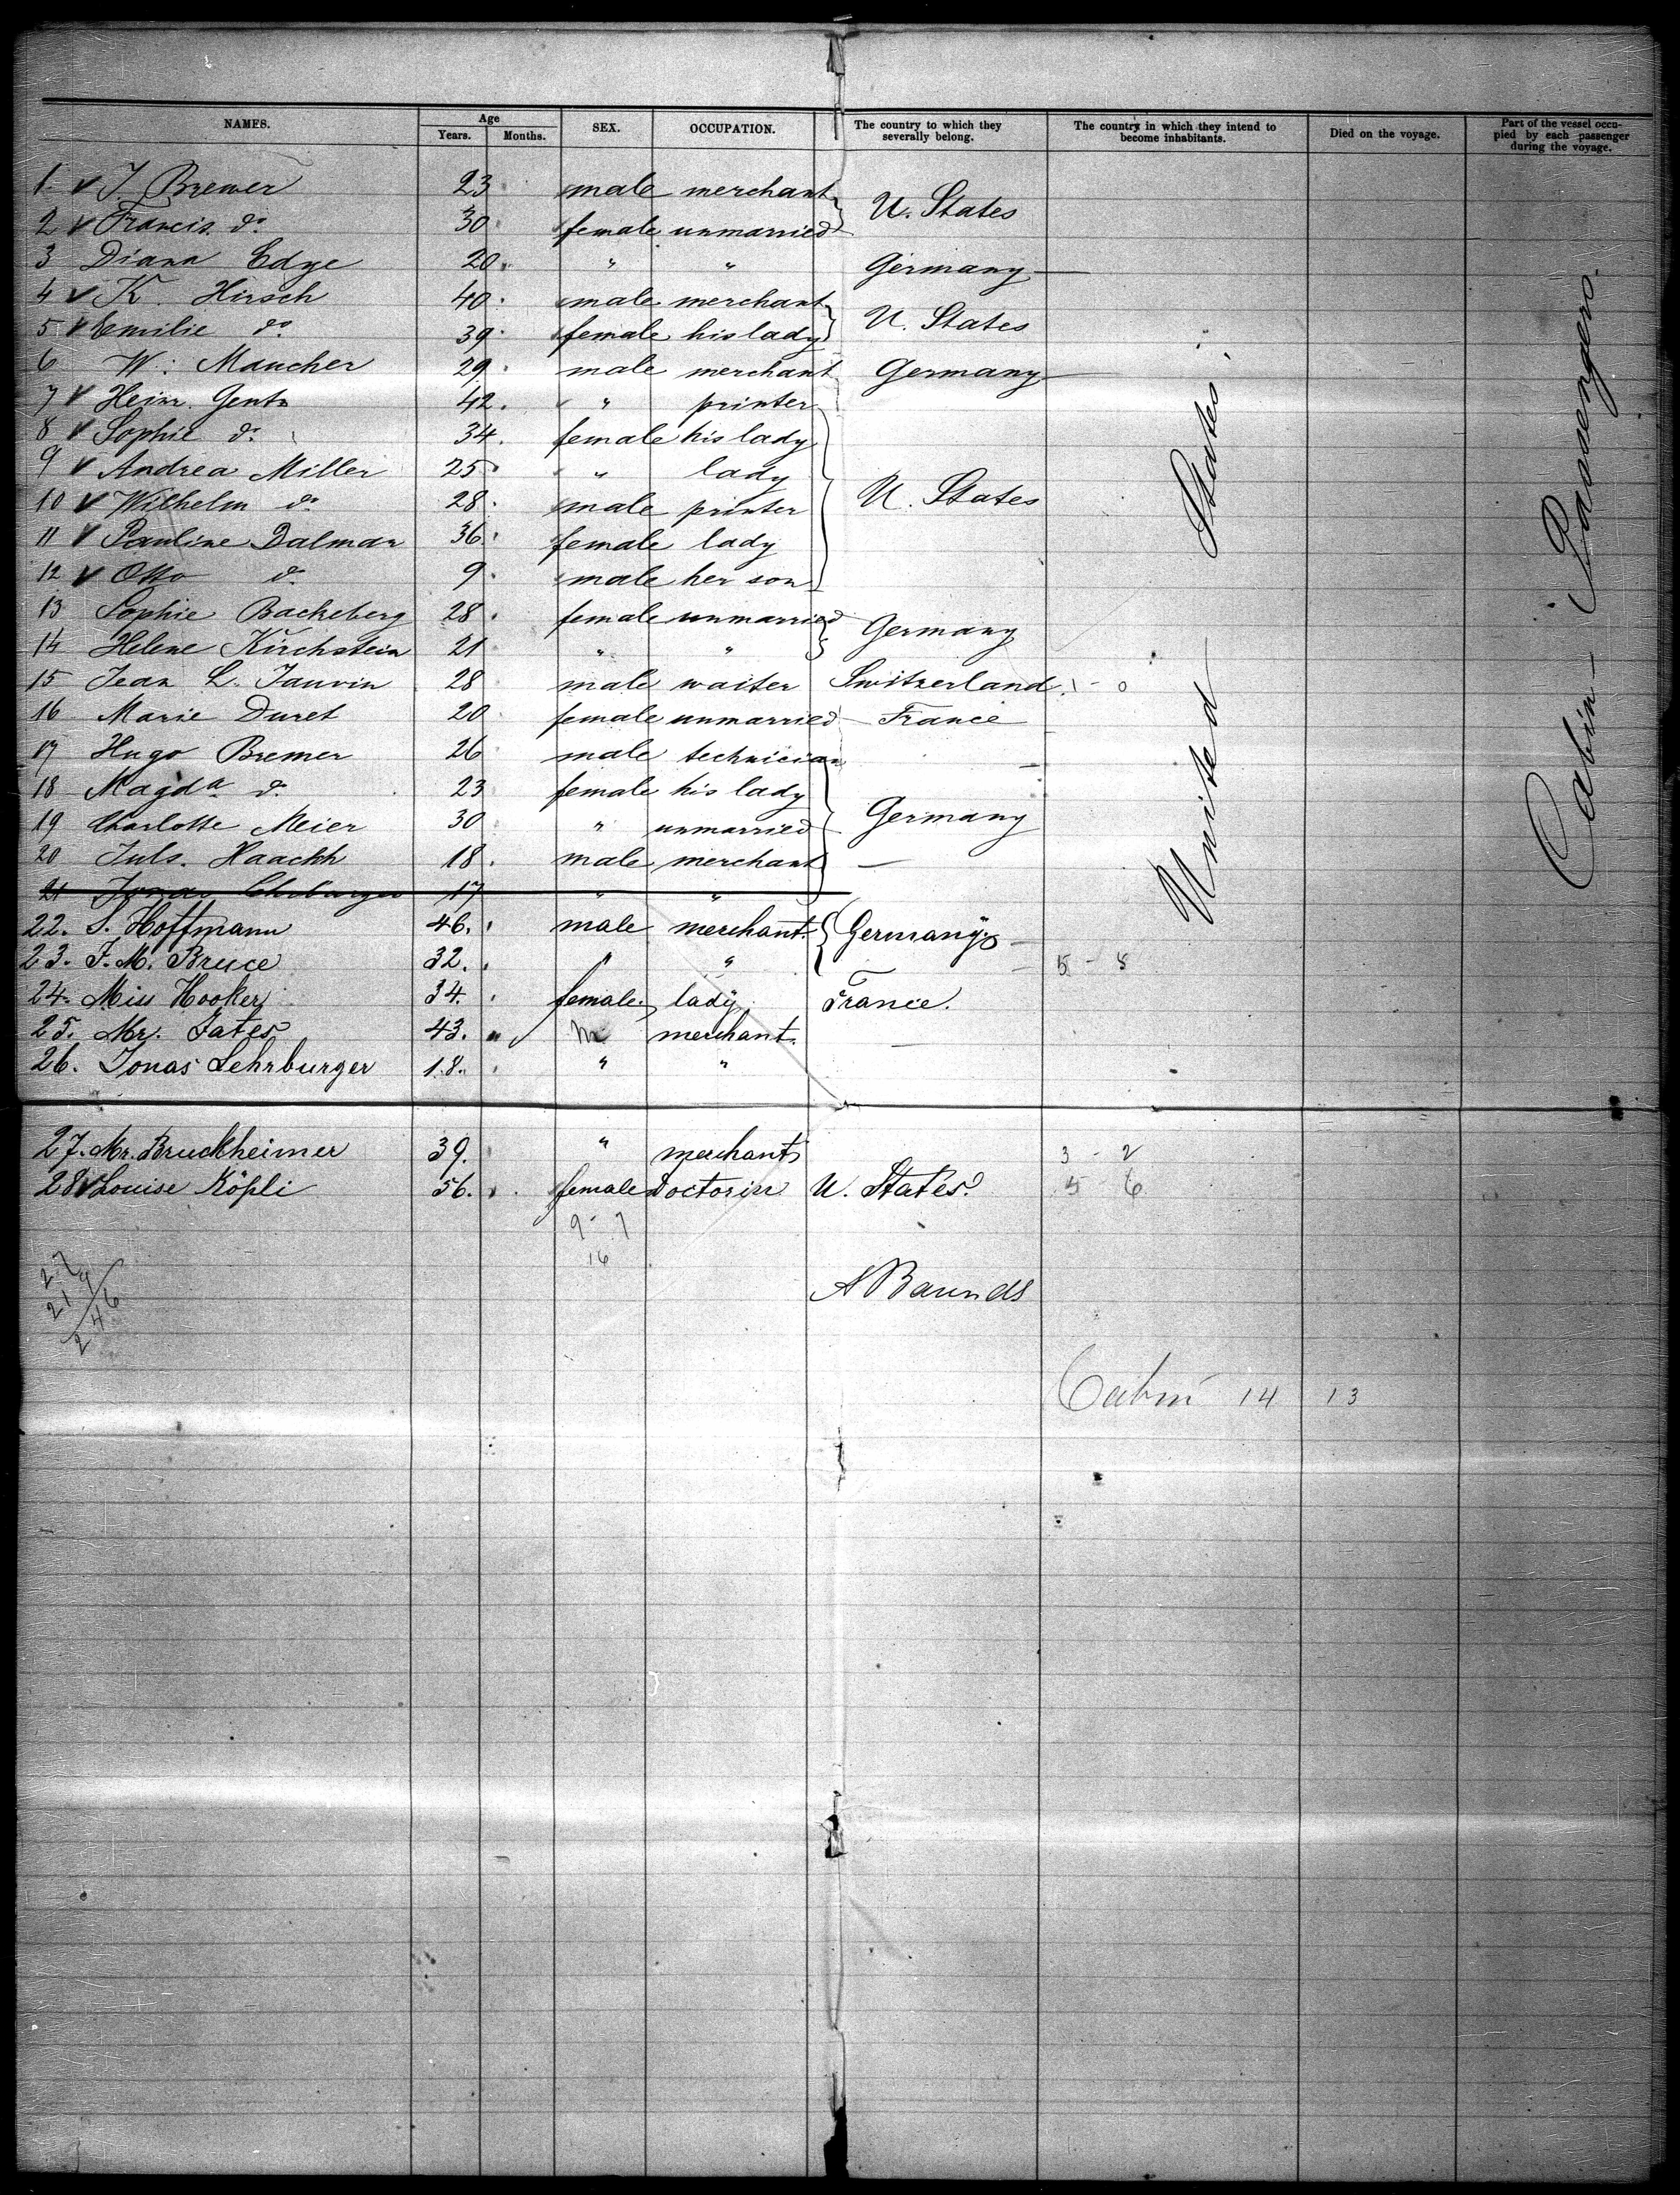 NAMES. Age Years. Months. SEX. OCCUPATION. The country to which they severally belong. The country in which they intend to become inhabitants. Died on the voyage. Part of the vessel occupied by each passenger during the voyage.
1. v J Bremer 23 male merchant } U. States
2 v Francis do 30 female unmarried
3 Diana Edge 20 " " Germany
4 v K. Hirsch 40 male merchant } U. States
5 v Emilie do 39 female his lady
6 W: Maucher 29 male merchant Germany
7 v Heinr. Gentz 42. " printer
8 v Sophie do. 34. female his lady
9 v Andrea Miller 25 " lady
10 v Wilhelm do 28. male printer } U. States
11 v Pauline Dalmar 36. female lady
12 v Otto do. 9. male her son
13 Sophie Backeberg 28. female unmarried } Germany
14 Helene Kirchstein 21 " "
15 Jean L. Jauvin 28 male waiter Switzerland. 1 - 0
16 Marie Duret 20 female unmarried France
17 Hugo Bremer 26 male technician
18 Magda do. 23 female his lady
19 Charlotte Meier 30 " unmarried } Germany
20 Juls. Haackh 18. male merchant
21 17 " "
22. S. Hoffmann 46. male merchant. { Germany.
23. F. M. Bruce 32. " " 5 - 8
24. Miss Hooker 34. female. lady. France.
25. Mr. Fates 43. m merchant.
26. Jonas Lehrburger 18. " "
27. Mr. Bruckheimer 39. " merchant 3 - 2
28 v Louise Köpli 56. female Doctorin U. States. 5 6
United States.
Cabin - Passengers.
9 - 7
16
27
219
246
Cabin 14 13